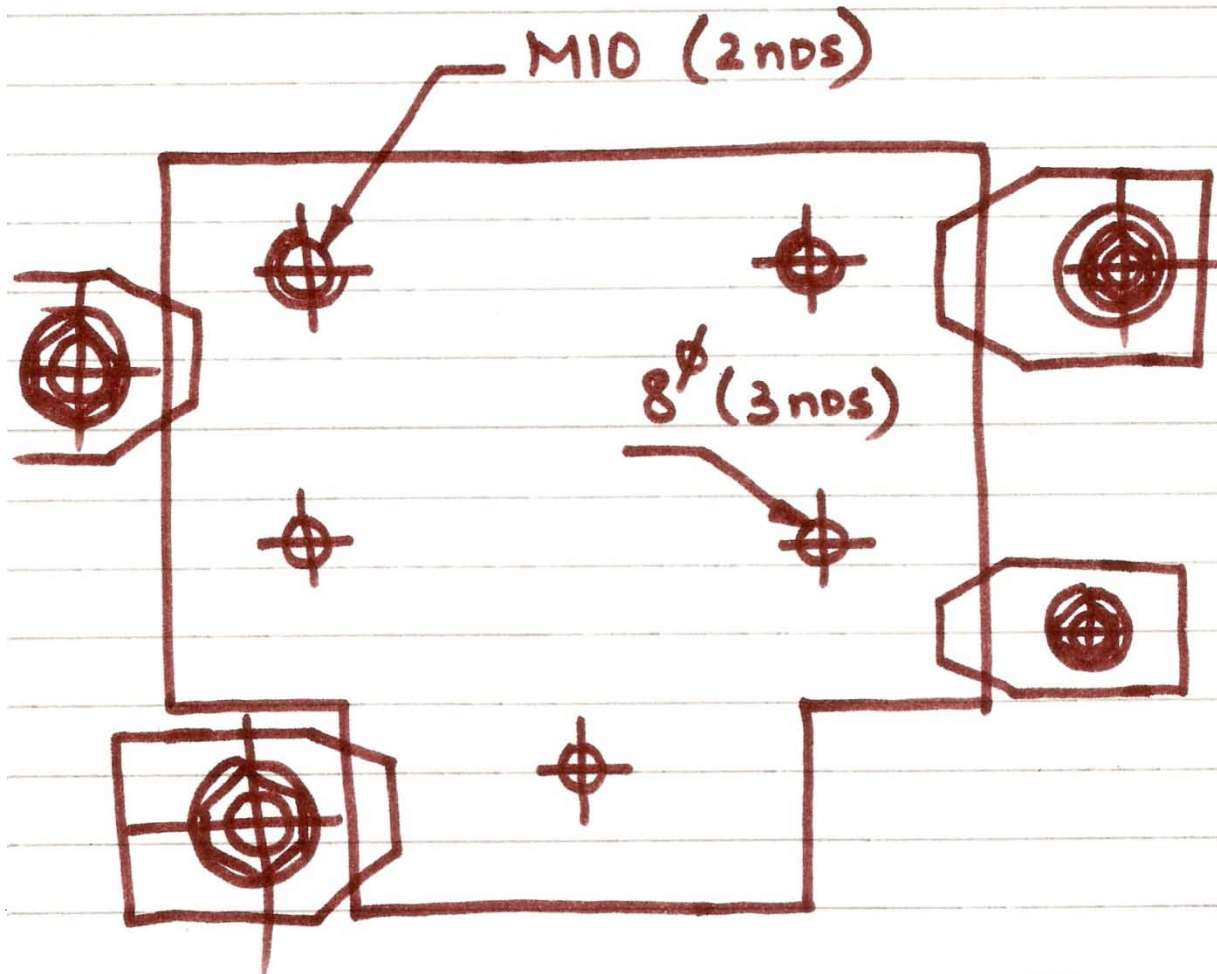 M10 (2nos)
8ϕ (3nos)